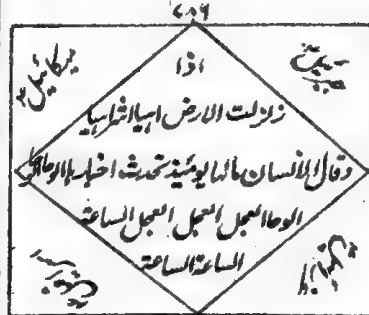 ۷۸۶
جبرائیل
میکائیل
اذا
زلزلت الارض اہیا اشراہیا
وقال الانسان مالہا یومئیذ تحدث اخبارہا الوحا
الوحا العجل العجل العجل الساعة
الساعة الساعة